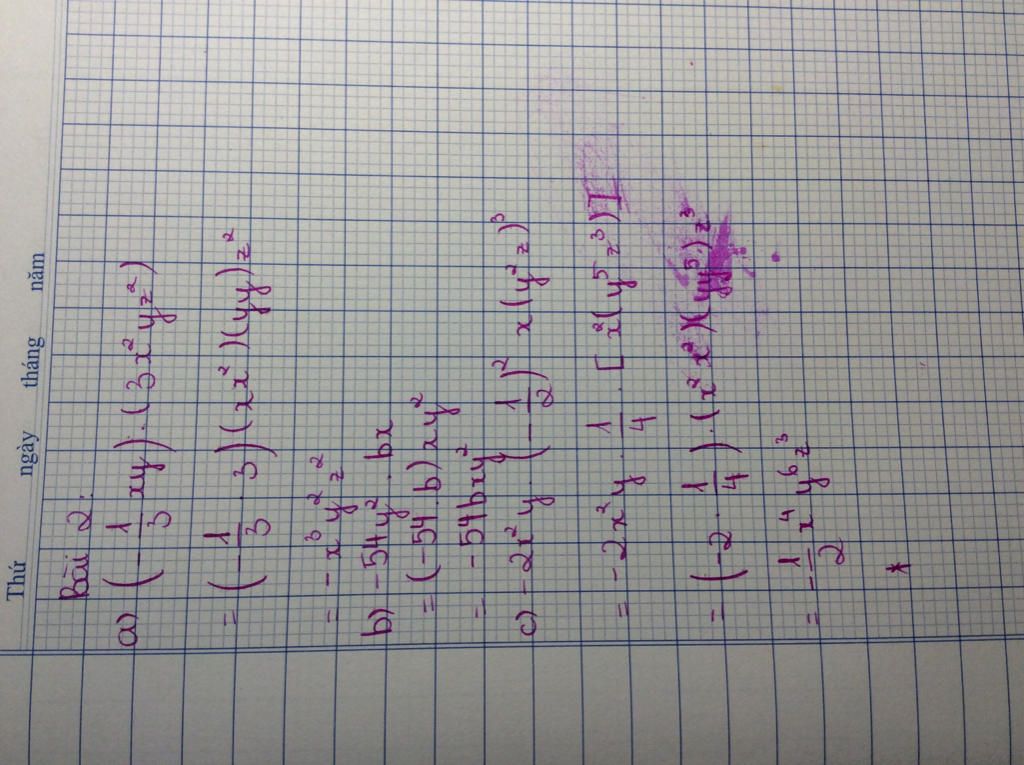 Thứ ngày tháng năm
Bài 2:
a) (-1/3 xy).(3x²yz²)
= (-1/3 . 3)(xx²)(yy)z²
= -x³y²z²
b) -54y² . bx
= (-54.b)xy²
= -54bxy²
c) -2x²y.(-1/2)² x(y²z)³
= -2x²y . 1/4 . [x²(y⁵z³)]
= (-2 . 1/4).(x²x²)(yy⁵)z³
= -1/2 x⁴y⁶z³
*